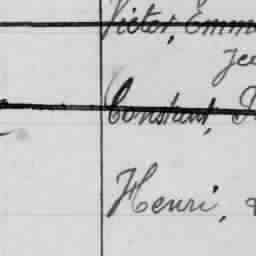 Victor, Emm
Constant,
Henri,